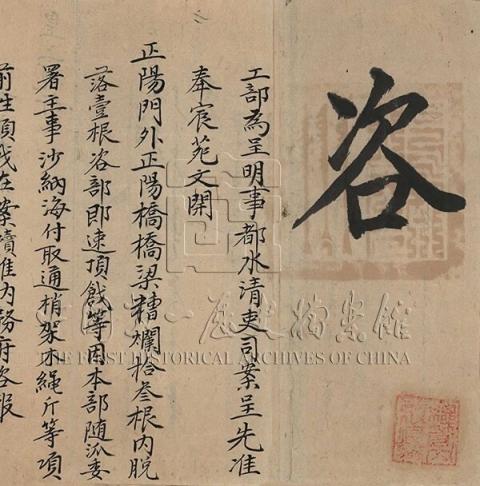 咨
工部為呈明事都水清吏司案呈先准
奉宸苑文開
正陽門外正陽橋橋梁糟爛拾叁根內脫
落壹根咨部即速頂戧等因本部隨派委
署主事沙納海付取通梢架木繩斤等項
前往頂戧在案續准內務府咨報
THE FIRST HISTORICAL ARCHIVES OF CHINA